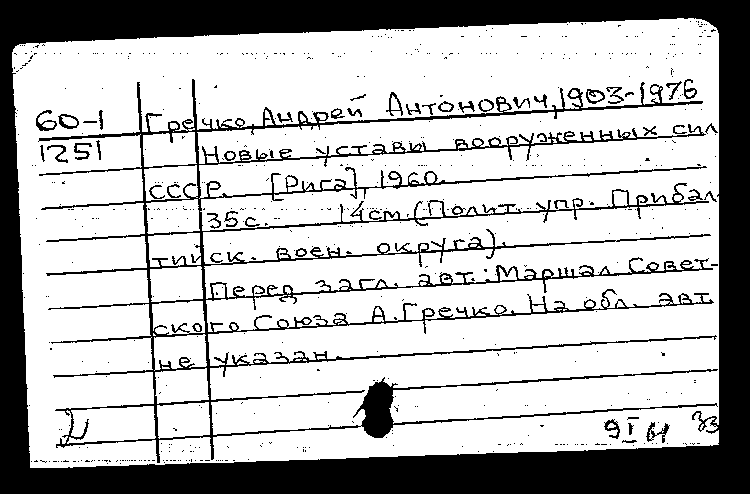 60-1 Гречко, Андрей Антонович, 1903-1976
1251 Новые уставы вооруженных сил
СССР. [Рига], 1960.
35с. 14см. (Полит. упр. Прибал-
тийск. воен. округа).
Перед загл. авт.: Маршал Совет-
ского Союза А. Гречко. На обл. авт.
не указан.
2
9 I 61 33